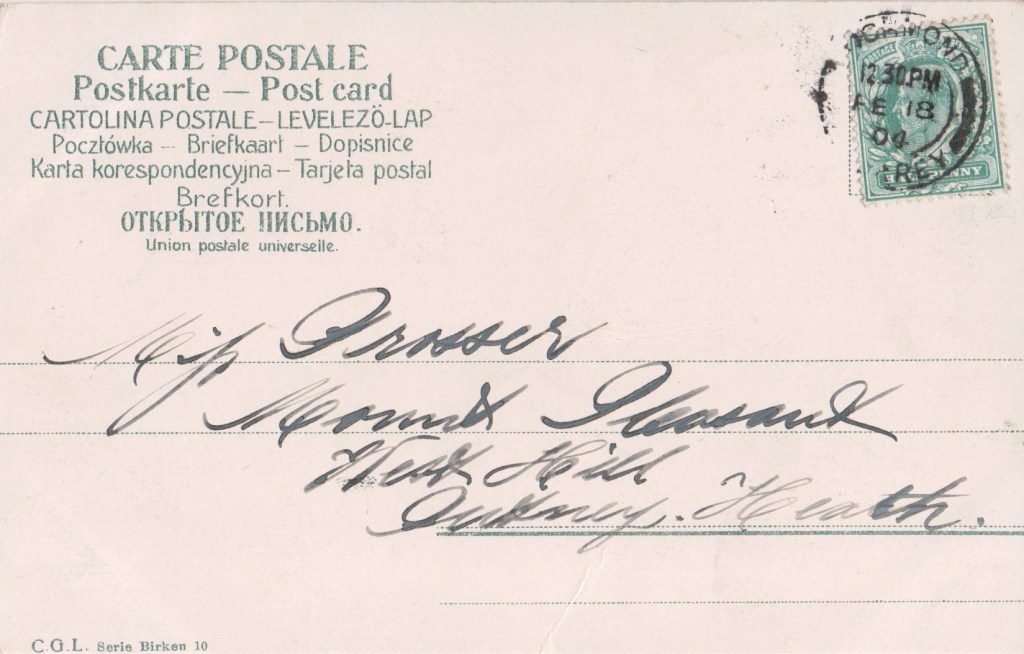 CARTE POSTALE
Postkarte — Post card
CARTOLINA POSTALE – LEVELEZÖ-LAP
Pocztówka – Briefkaart – Dopisnice
Karta korespondencyjna – Tarjeta postal
Brefkort.
ОТКРЫТОЕ ПИСЬМО.
Union postale universelle.
POSTAGE
RICHMOND
12.30PM
FE 18
04
HALFPENNY
Miss Prosser
Mount Pleasant
West Hill
Putney. Heath.
C.G.L. Serie Birken 10